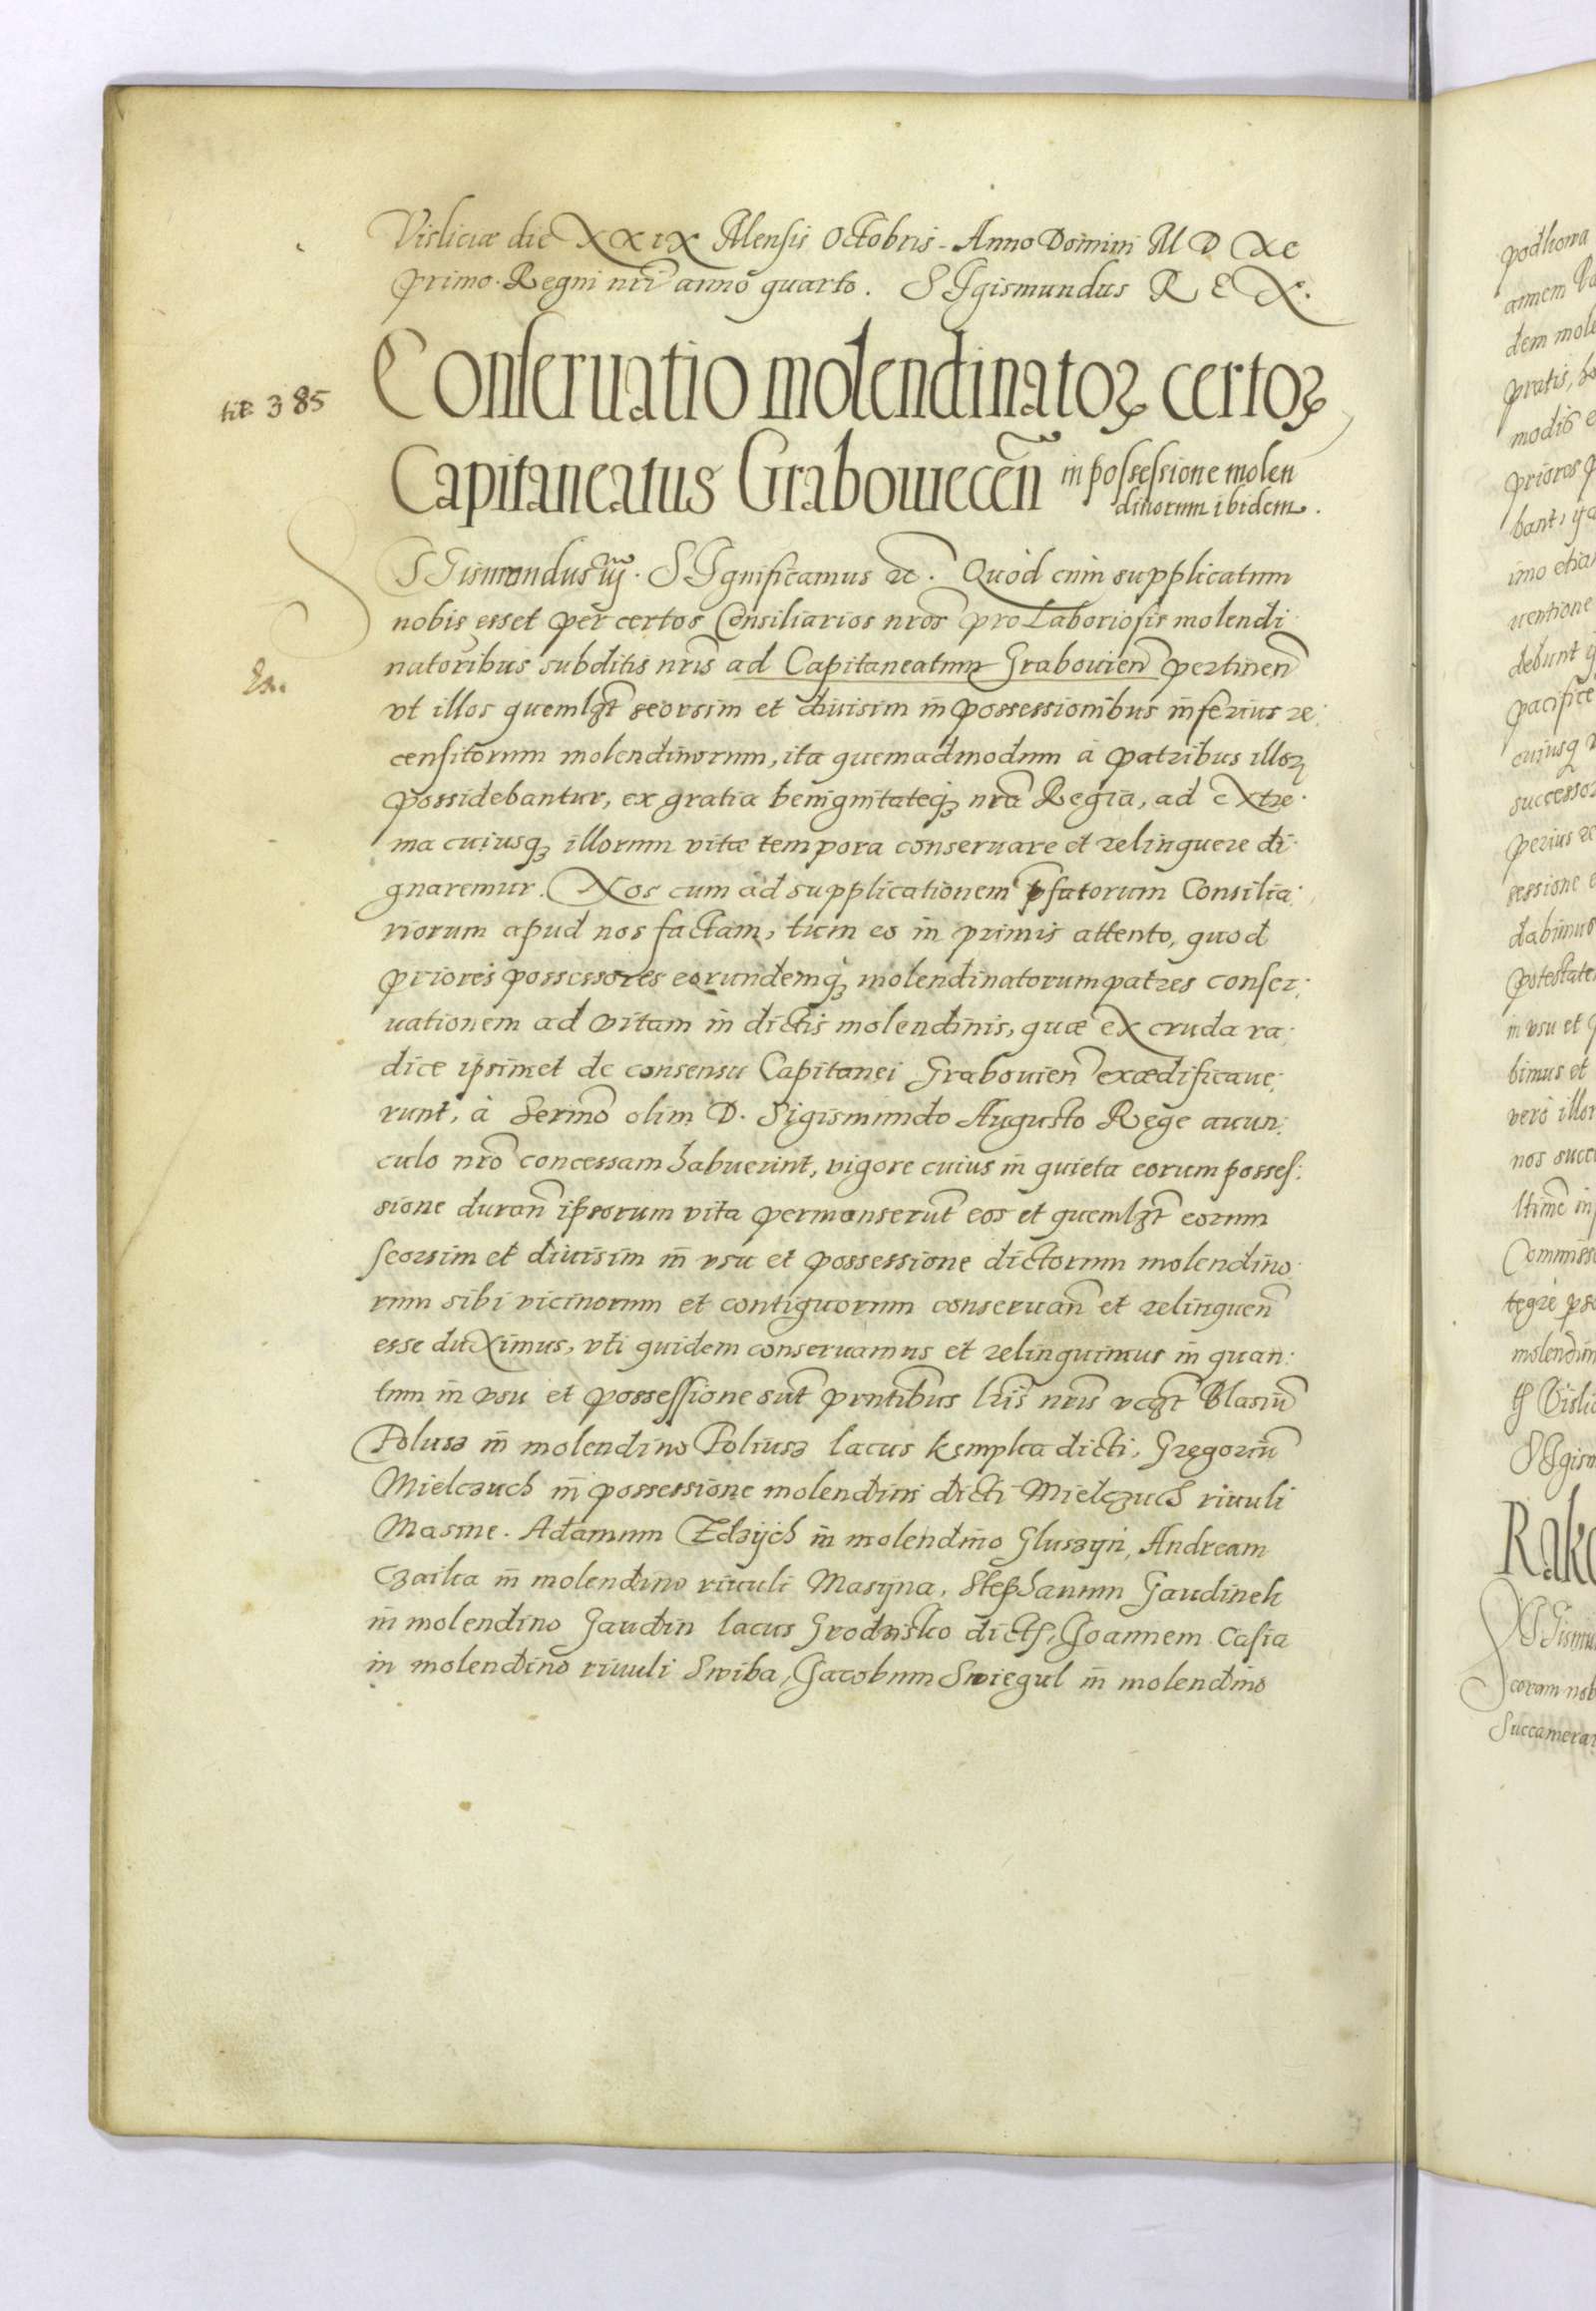 Visliciæ die XXIX Mensis Octobris - Anno Domini M D XC
primo. Regni nri anno quarto. SIgismundus REX.
tit 385
Conseruatio molendinatoꝝ certoꝝ
Capitaneatus Grabowiecen̄ in possessione molen
dinorum ibidem.
SIGismundus iij. SIgnificamus ꝛc. Quòd cum supplicatum
nobis esset per certos Consiliarios nros pro Laboriosis molendi
natoribus subditis nris ad Capitaneatum Grabouien̄ pertinen̄
Ex.
vt illos quemlꝫt seorsim et diuisim in possessionibus inferius re:
censitorum molendinorum, ita quemadmodum à patribus illoꝝ
possidebantur, ex gratia benignitateqꝫ nra Regia, ad extre:
ma cuiusqꝫ illorum vitæ tempora conseruare et relinquere di:
gnaremur. Nos cum ad supplicationem pfatorum Consilia:
riorum apud nos factam, tum eo in primis attento, quod
priores possessores eorundemqꝫ molendinatorum patres conser:
uationem ad vitam in dictis molendinis, quæ ex cruda ra:
dice ipsimet de consensu Capitanei Grabouien̄ exædificaue:
runt, à Sermo olim D. Sigismundo Augusto Rege auun:
culo nro concessam habuerint, vigore cuius in quieta eorum posses:
sione duran̄ ipsorum vita permanserut̄ eos et quemlꝫt eorum
seorsim et diuisim in vsu et possessione dictorum molendino:
rum sibi vicinorum et contiguorum conseruan̄ et relinquen̄
esse duximus, vti quidem conseruamus et relinquimus in quan:
tum in vsu et possessione sut̄ pntibus lris nris vcꝫt Blasiū
Polusz in molendino Poliusz lacus kempka dicti, Gregoriū
Mielczuch in possessione molendini dicti Mielczuch riuuli
Masine. Adamum Zdzijch in molendino Gluszyn, Andream
Czaika in molendino riuuli Masijna, Stephanum Gaudinek
in molendino Gaudin lacus Grodzisko dict, Joannem Casia
in molendino riuuli Swiba, Jacobum Swiegul in molendino